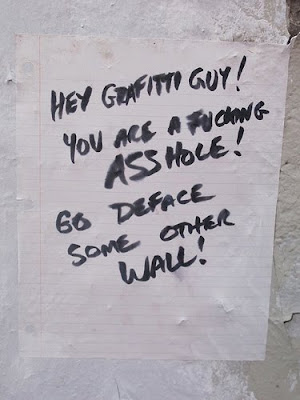 HEY GRAFITTI GUY!
YOU ARE A FUCKING
ASSHOLE!
GO DEFACE
SOME OTHER
WALL!